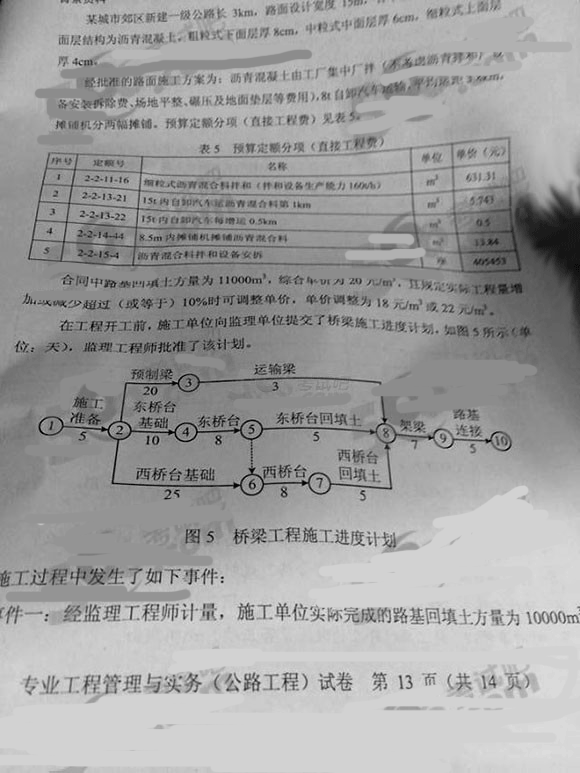 某城市郊区新建一级公路长 3km，路面设计宽度 15m，
面层结构为沥青混凝土、粗粒式下面层厚 8cm，中粒式中面层厚 6cm，细粒式上面层
厚 4cm。
经批准的路面施工方案为：沥青混凝土由工厂集中厂拌（不考虑沥青拌和厂
备安装拆除费、场地平整、碾压及地面垫层等费用），8t 自卸汽车运输，平均运距
摊铺机分两幅摊铺。预算定额分项（直接工程费）见表 5。
表 5 预算定额分项（直接工程费）
序号 定额号 名称 单位 单价（元）
1 2-2-11-16 细粒式沥青混合料拌和（拌和设备生产能力 160t/h） m³ 631.31
2 2-2-13-21 15t 内自卸汽车运沥青混合料第 1km m³ 5.743
3 2-2-13-22 15t 内自卸汽车每增运 0.5km m³ 0.5
4 2-2-14-44 8.5m 内摊铺机摊铺沥青混合料 m³ 13.84
5 2-2-15-4 沥青混合料拌和设备安拆 座 405453
合同中路基回填土方量为 11000m³，综合单价为 20 元/m³，且规定实际工程量增
加或减少超过（或等于）10%时可调整单价，单价调整为 18 元/m³ 或 22 元/m³。
在工程开工前，施工单位向监理单位提交了桥梁施工进度计划，如图 5 所示（单
位：天），监理工程师批准了该计划。
预制梁 运输梁
20 3 3
施工准备 东桥台基础 东桥台 东桥台回填土 架梁 路基连接
1 5 2 10 4 8 5 5 8 7 9 5 10
西桥台基础 西桥台 西桥台回填土
25 6 8 7 5
图 5 桥梁工程施工进度计划
施工过程中发生了如下事件：
事件一：经监理工程师计量，施工单位实际完成的路基回填土方量为 10000m³
专业工程管理与实务（公路工程）试卷 第 13 页（共 14 页）